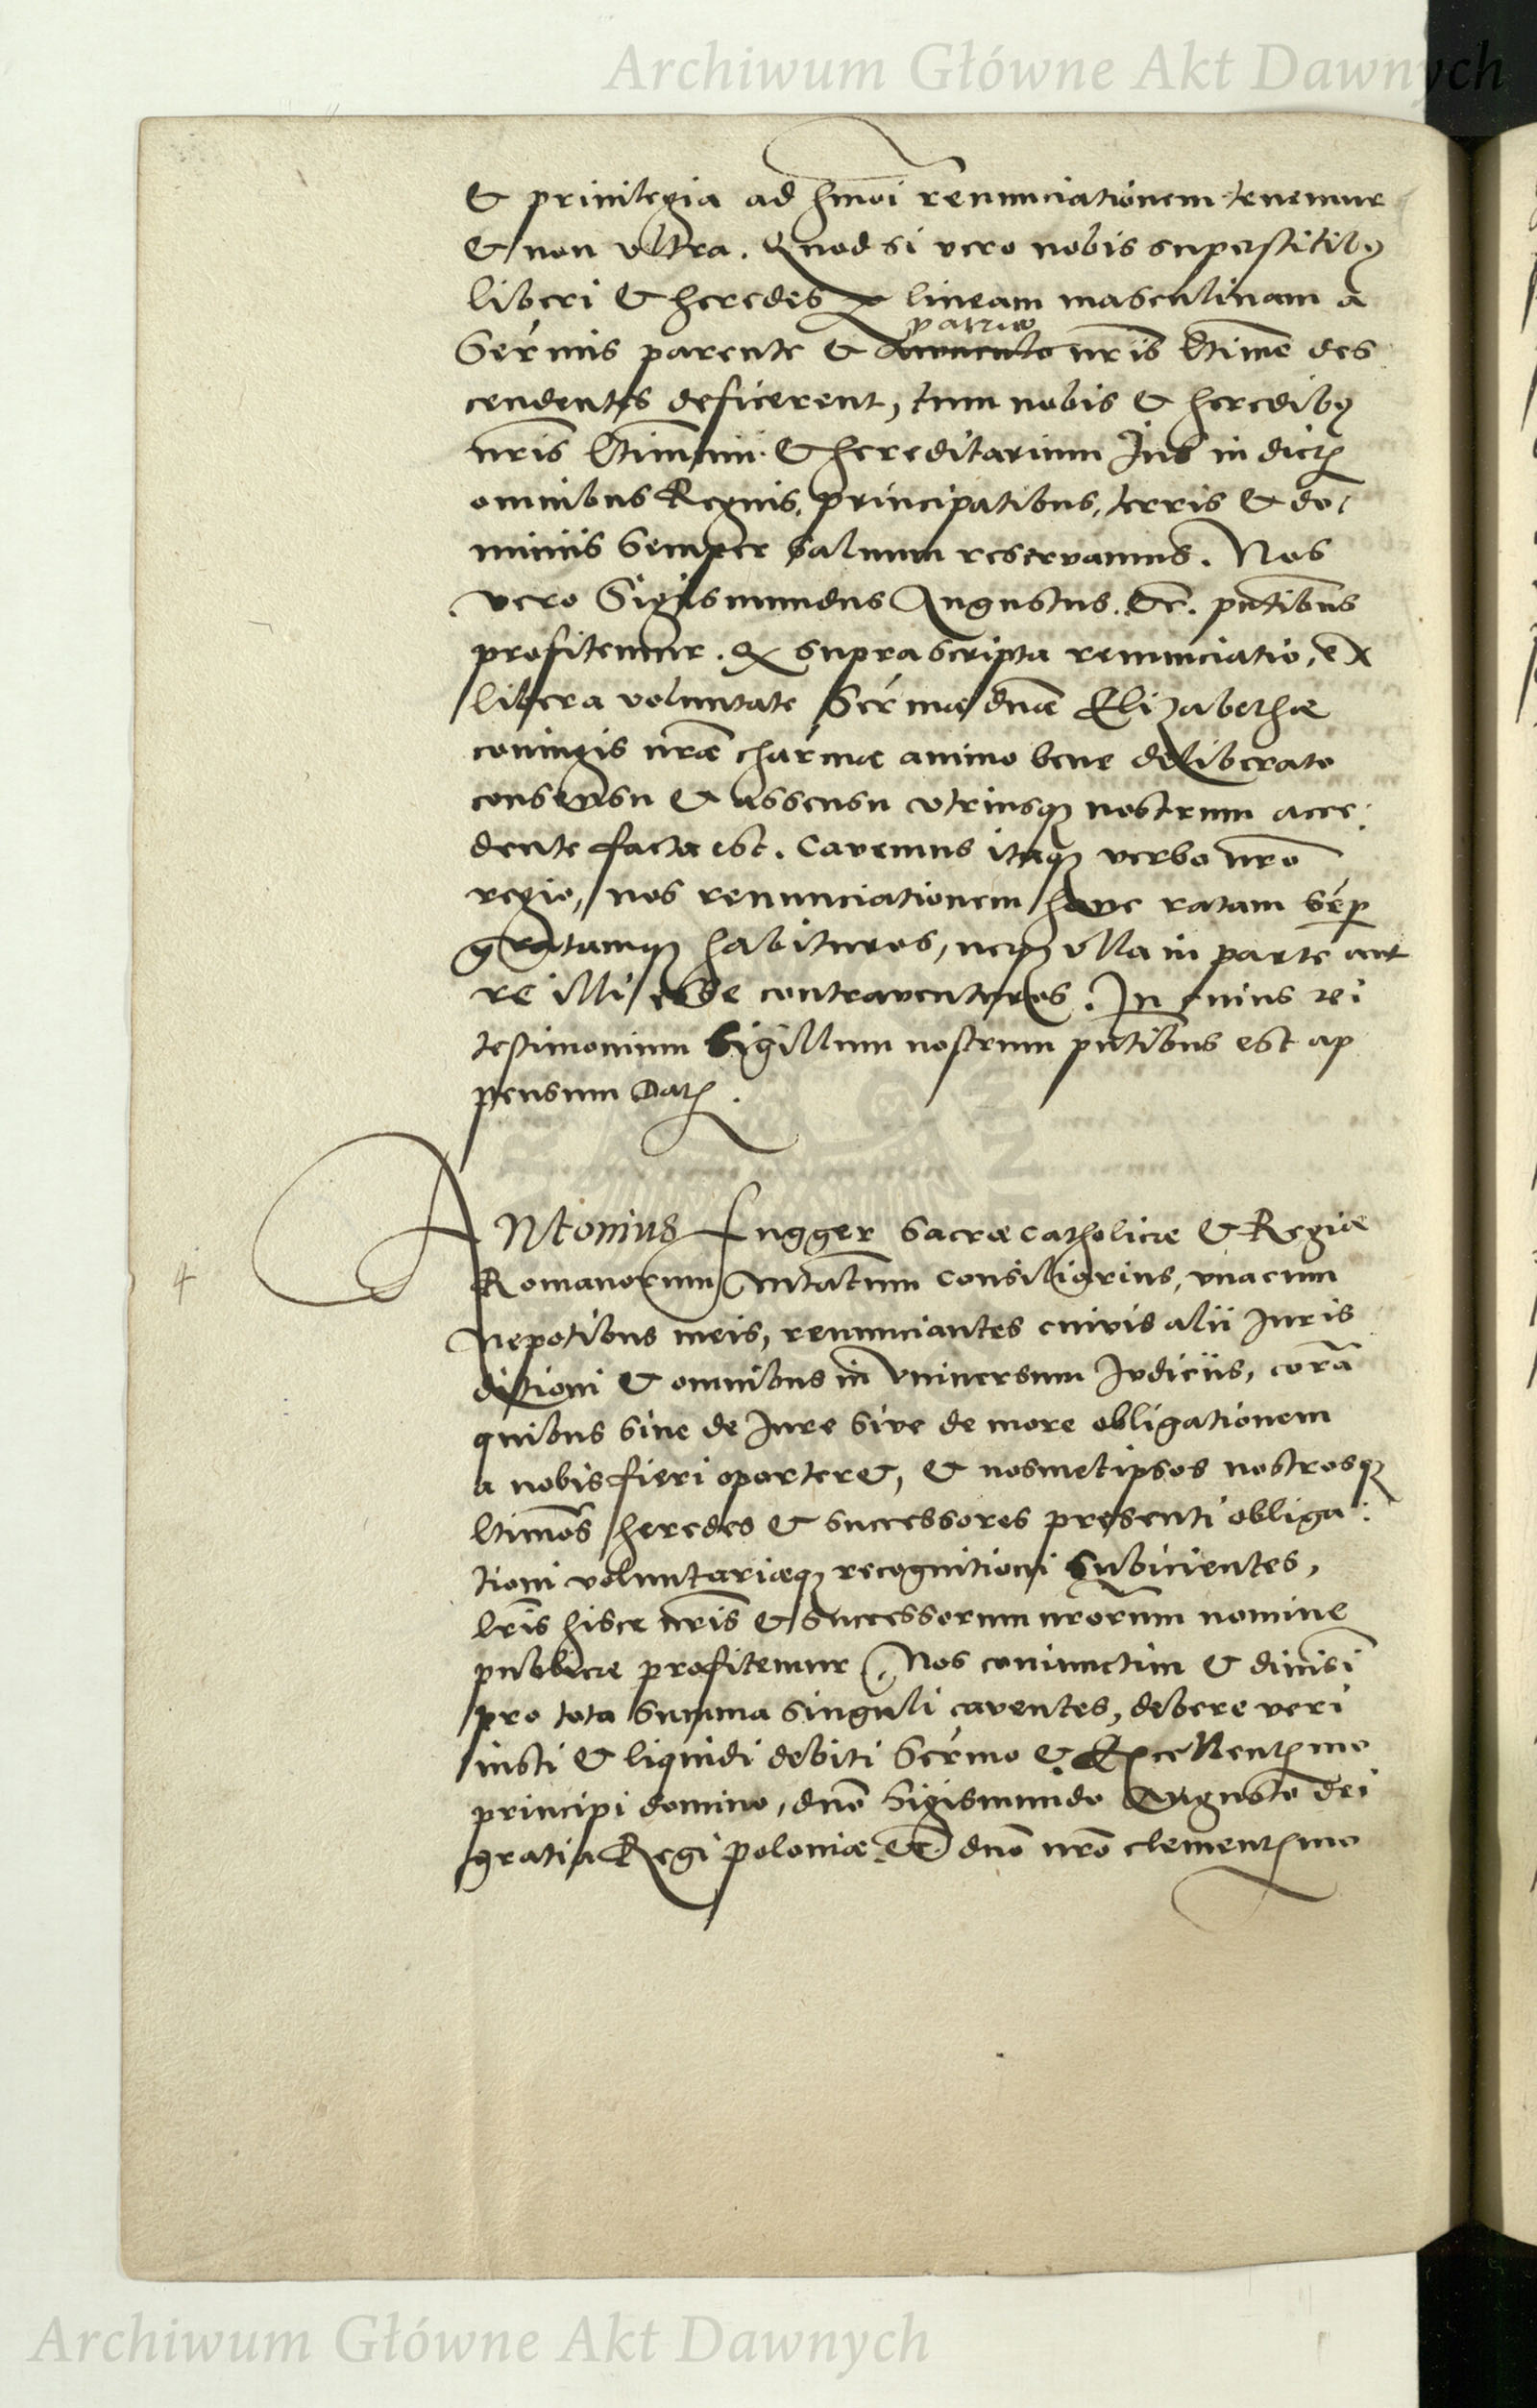 Archiwum Główne Akt Dawnych
& priuilegia ad hmōi renunciationem tenemur
& non vltra. Quod si vero nobis superstitibꝫ
liberi & heredes ꝑ lineam masculinam a
patruo
Serᵐⁱˢ parente & auunculo nr̄is ltīme des
cendentes deficerent, tum nobis & heredibꝫ
nr̄is ltīmum & hereditarium Jus in dictꝭ
omnibus Regnis, principatibus, terris & do
minijs semper saluum reservamus. Nos
vero Sigismundus Augustus. &c. pn̄tibus
profitemur. ꝙ suprascripta renunciatio, ex
libera voluntate Serᵐᵃᵉ dn̄æ Elizabethæ
coniugis nr̄æ charᵐᵃᵉ animo bene deliberato
consensu & assensu vtriusqꝫ nostrum acce:
dente facta est. Cavemus itaqꝫ verbo nr̄o
regio, nos renunciationem hanc ratam sēp
gratamqꝫ habituros, neqꝫ vlla in parte aut
re illi esse contraventuros. In cuius rei
testimonium Sigillum nostrum pn̄tibus est ap
pensum Datꝭ.
ANtonius Fugger Sacræ Catholicæ & Regiæ
4
Romanorum Mtātum Consiliarius, vnacum
Nepotibus meis, renunciantes cuivis alii Juris
dictioni & omnibus in Vniuersum Judiciis, corā
quibus siue de Jure sive de more obligationem
a nobis fieri oporteret, & nosmetipsos nostrosqꝫ
ltīmos heredes & successores presenti obliga:
tioni voluntariæqꝫ recognitioni subiicientes,
lr̄is hisce nr̄is & successorum nr̄orum nomine
publice profitemur, Nos coniunctim & diuisī
pro tota summa singuli caventes, debere veri
iusti & liquidi debiti Serᵐᵒ & Excellentꝭᵐᵒ
principi domino, dn̄o Sigismundo Augusto dei
gratia Regi Poloniæ &c. dn̄o nr̄o clementꝭᵐᵒ
Archiwum Główne Akt Dawnych